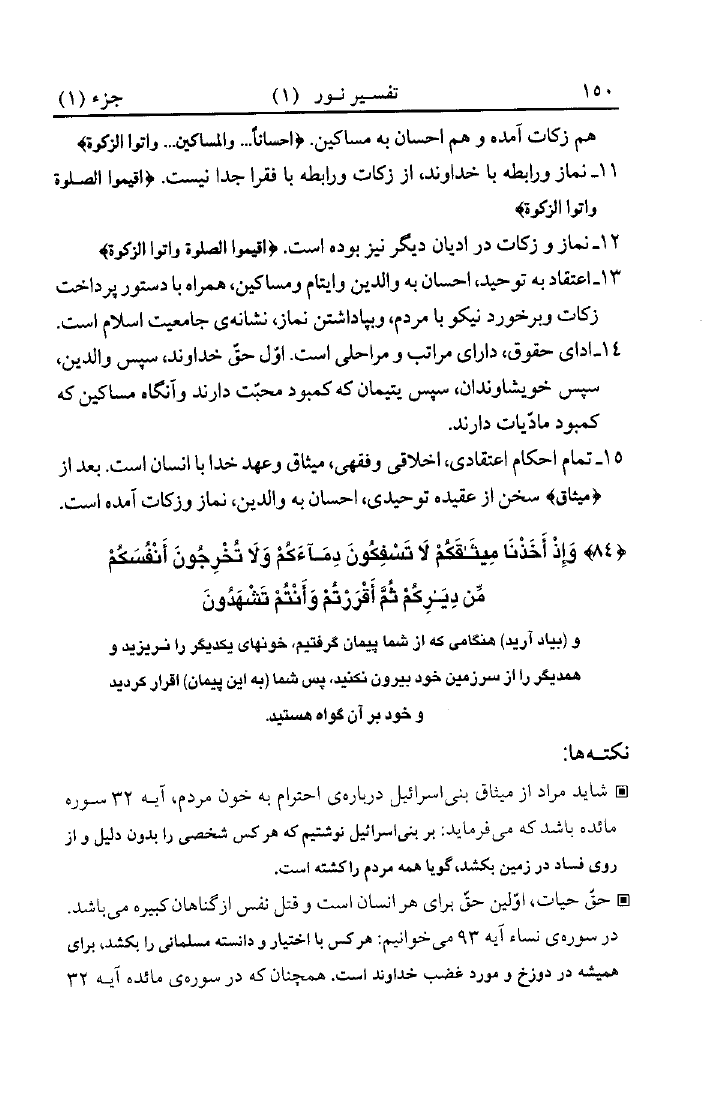 ۱۵۰ تفسیر نور (۱) جزء (۱)
هم زکات آمده و هم احسان به مساکین. ﴿احساناً... والمساکین... واتوا الزکوة﴾
۱۱ـ نماز ورابطه با خداوند، از زکات ورابطه با فقرا جدا نیست. ﴿اقیموا الصلوة
واتوا الزکوة﴾
۱۲ـ نماز و زکات در ادیان دیگر نیز بوده است. ﴿اقیموا الصلوة واتوا الزکوة﴾
۱۳ـ اعتقاد به توحید، احسان به والدین وایتام ومساکین، همراه با دستور پرداخت
زکات وبرخورد نیکو با مردم، وبپاداشتن نماز، نشانه‌ی جامعیت اسلام است.
۱٤ـ ادای حقوق، دارای مراتب و مراحلی است. اوّل حقّ خداوند، سپس والدین،
سپس خویشاوندان، سپس یتیمان که کمبود محبّت دارند وآنگاه مساکین که
کمبود مادّیات دارند.
۱۵ـ تمام احکام اعتقادی، اخلاقی وفقهی، میثاق وعهد خدا با انسان است. بعد از
﴿میثاق﴾ سخن از عقیده توحیدی، احسان به والدین، نماز وزکات آمده است.
﴿۸٤﴾ وَإِذْ أَخَذْنَا مِيثَـٰقَكُمْ لَا تَسْفِكُونَ دِمَآءَكُمْ وَلَا تُخْرِجُونَ أَنْفُسَكُمْ
مِّن دِيَـٰرِكُمْ ثُمَّ أَقْرَرْتُمْ وَأَنْتُمْ تَشْهَدُونَ
و (بیاد آرید) هنگامی که از شما پیمان گرفتیم، خونهای یکدیگر را نریزید و
همدیگر را از سرزمین خود بیرون نکنید، پس شما (به این پیمان) اقرار کردید
و خود بر آن گواه هستید.
نکته‌ها:
▣ شاید مراد از میثاق بنی‌اسرائیل درباره‌ی احترام به خون مردم، آیه ۳۲ سوره
مائده باشد که می‌فرماید: بر بنی‌اسرائیل نوشتیم که هر کس شخصی را بدون دلیل و از
روی فساد در زمین بکشد، گویا همه مردم را کشته است.
▣ حقّ حیات، اوّلین حقّ برای هر انسان است و قتل نفس از گناهان کبیره می‌باشد.
در سوره‌ی نساء آیه ۹۳ می‌خوانیم: هر کس با اختیار و دانسته مسلمانی را بکشد، برای
همیشه در دوزخ و مورد غضب خداوند است. همچنان که در سوره‌ی مائده آیه ۳۲